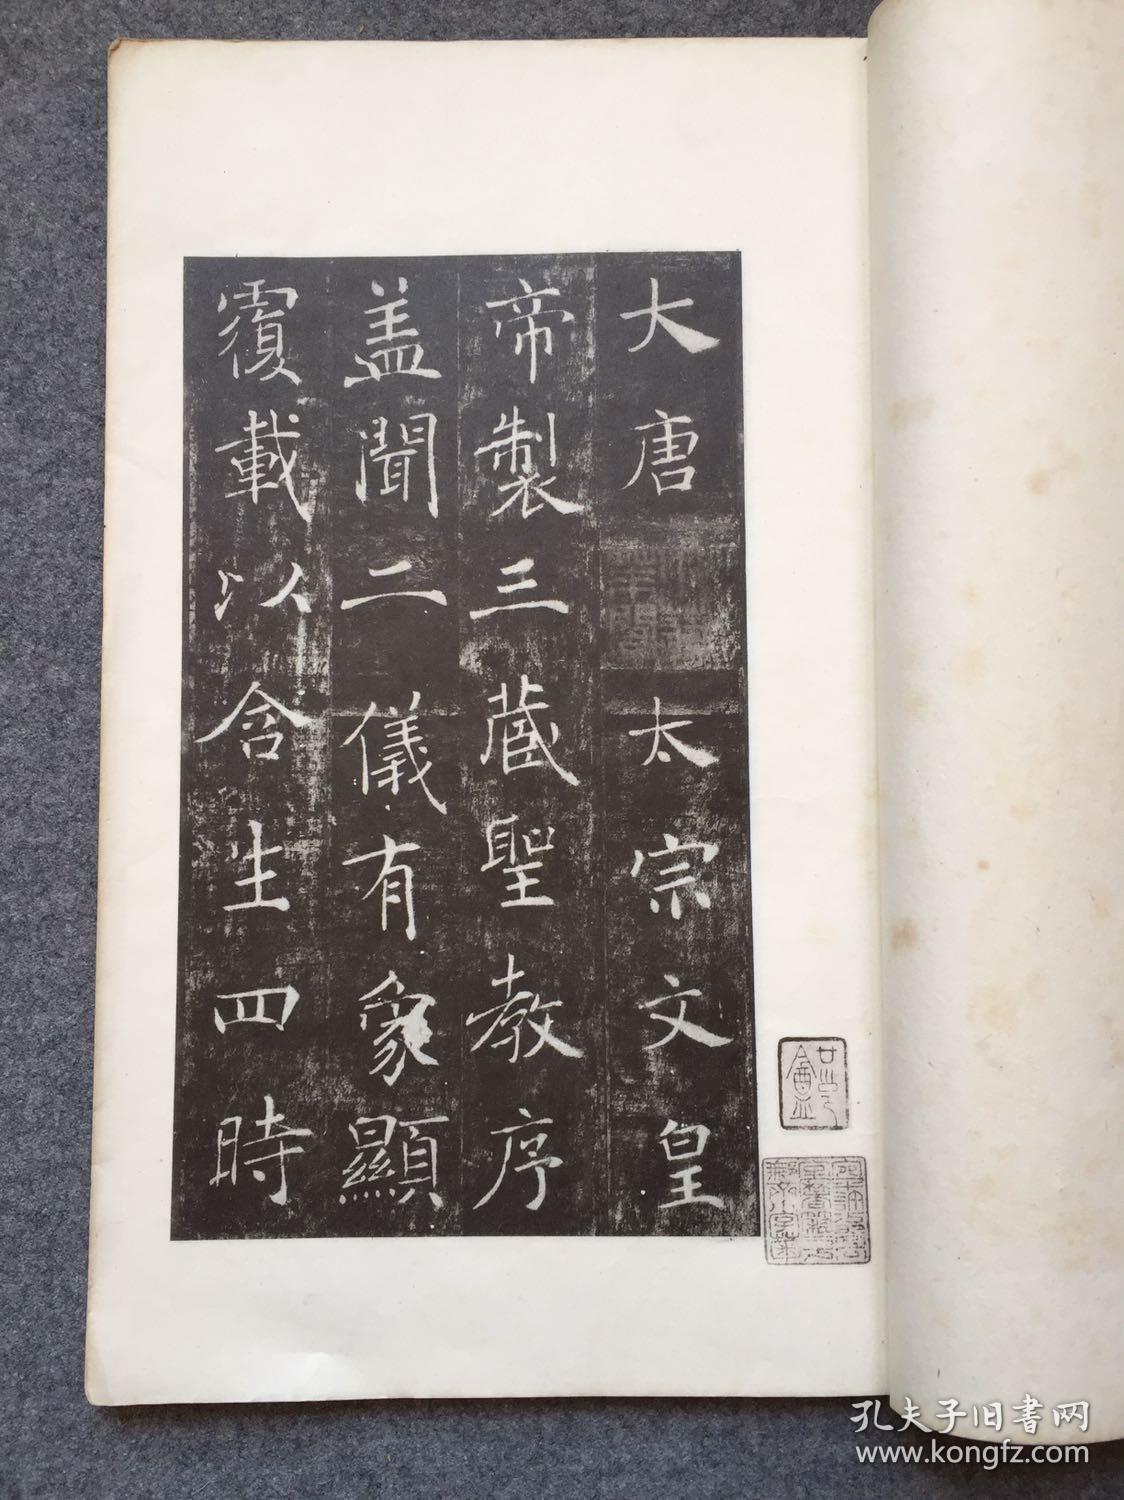 大唐太宗文皇
帝製三蔵聖教序
盖聞二儀有象顯
覆載以含生四時
孔夫子旧書网
www.kongfz.com